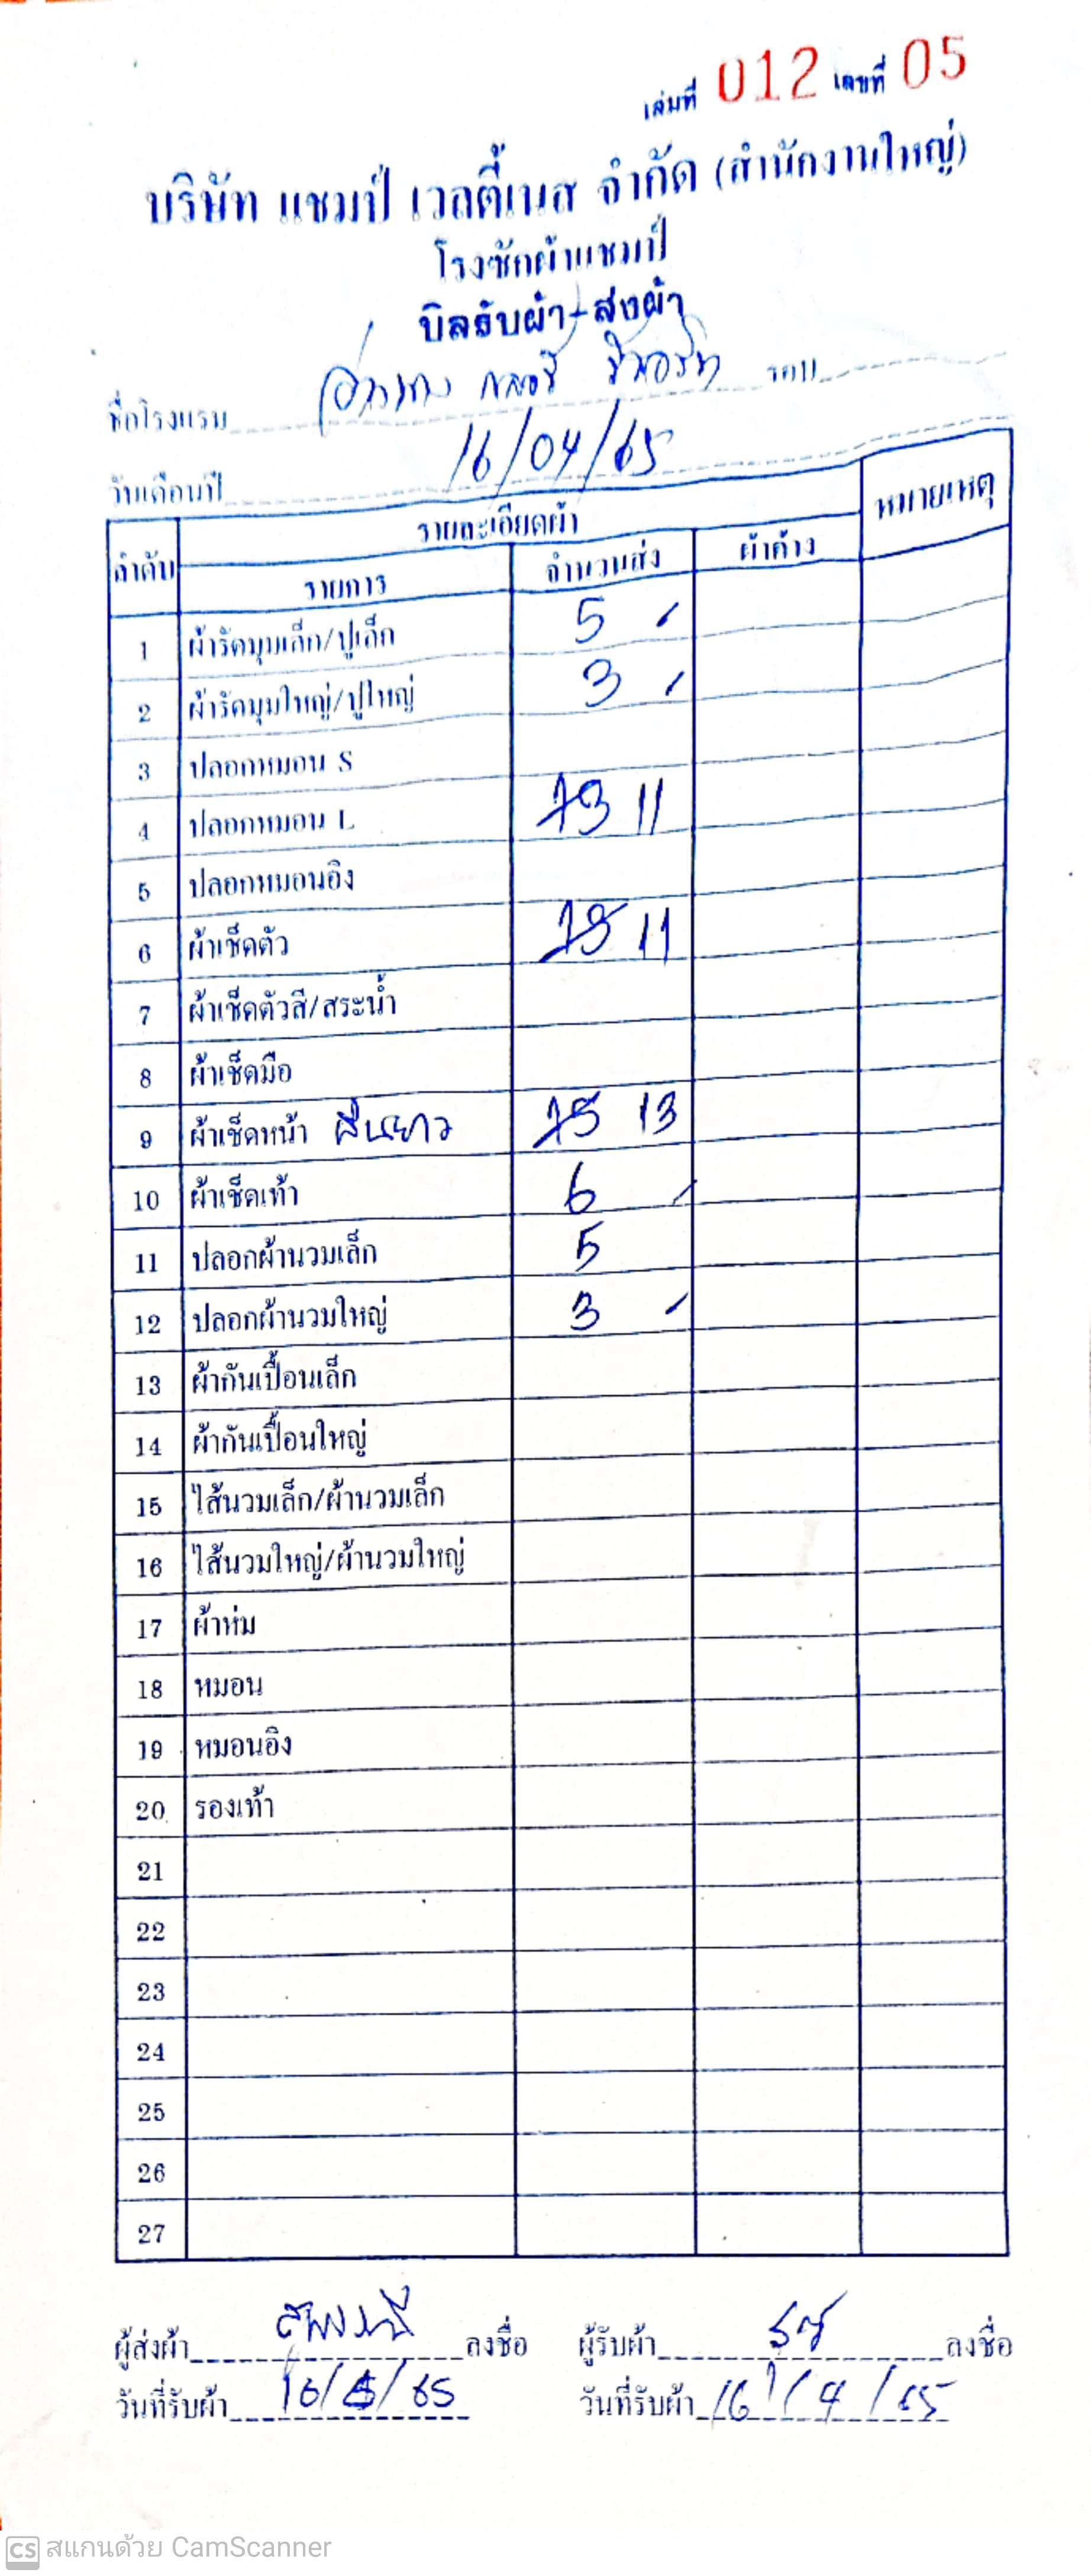 เล่มที่ 012 เลขที่ 05
บริษัท แชมป์ เวลตี้เนส จำกัด (สำนักงานใหญ่)
โรงซักผ้าแชมป์
บิลรับผ้า-ส่งผ้า
ชื่อโรงแรม รอบ
วันเดือนปี 16/04/65
ลำดับ รายละเอียดผ้า หมายเหตุ
รายการ จำนวนส่ง ผ้าค้าง
1 ผ้ารัดมุมเล็ก/ปูเล็ก 5
2 ผ้ารัดมุมใหญ่/ปูใหญ่ 3
3 ปลอกหมอน S
4 ปลอกหมอน L 11
5 ปลอกหมอนอิง
6 ผ้าเช็ดตัว 11
7 ผ้าเช็ดตัวสี/สระน้ำ
8 ผ้าเช็ดมือ
9 ผ้าเช็ดหน้า ผืนยาว 13
10 ผ้าเช็ดเท้า 6
11 ปลอกผ้านวมเล็ก 5
12 ปลอกผ้านวมใหญ่ 3
13 ผ้ากันเปื้อนเล็ก
14 ผ้ากันเปื้อนใหญ่
15 ไส้นวมเล็ก/ผ้านวมเล็ก
16 ไส้นวมใหญ่/ผ้านวมใหญ่
17 ผ้าห่ม
18 หมอน
19 หมอนอิง
20 รองเท้า
21
22
23
24
25
26
27
ผู้ส่งผ้า ลงชื่อ ผู้รับผ้า ลงชื่อ
วันที่รับผ้า วันที่รับผ้า 16/4/65
CS สแกนด้วย CamScanner